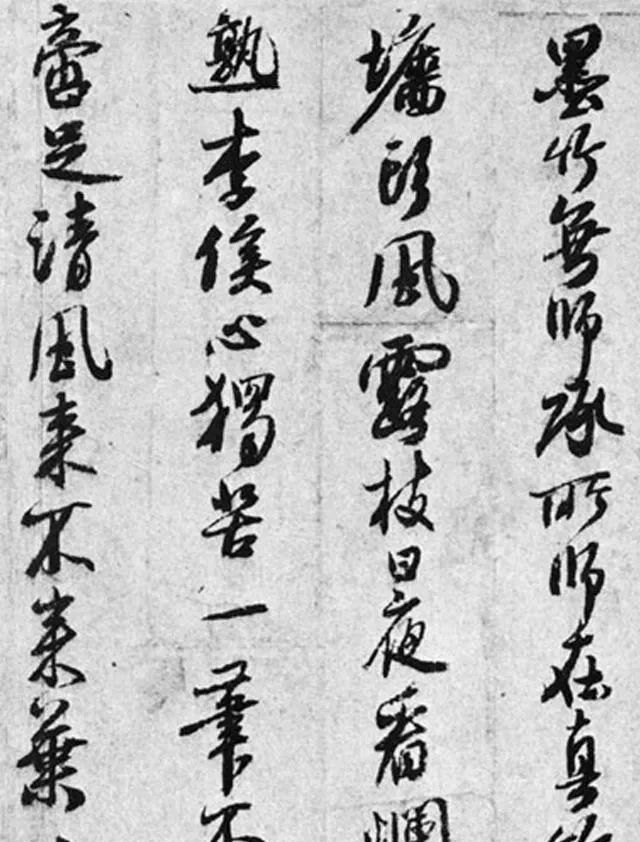 墨竹無師承所師在真
墉頭風露枝日夜看爛
熟李侯心獨苦一筆不
啻足清風来不来葉